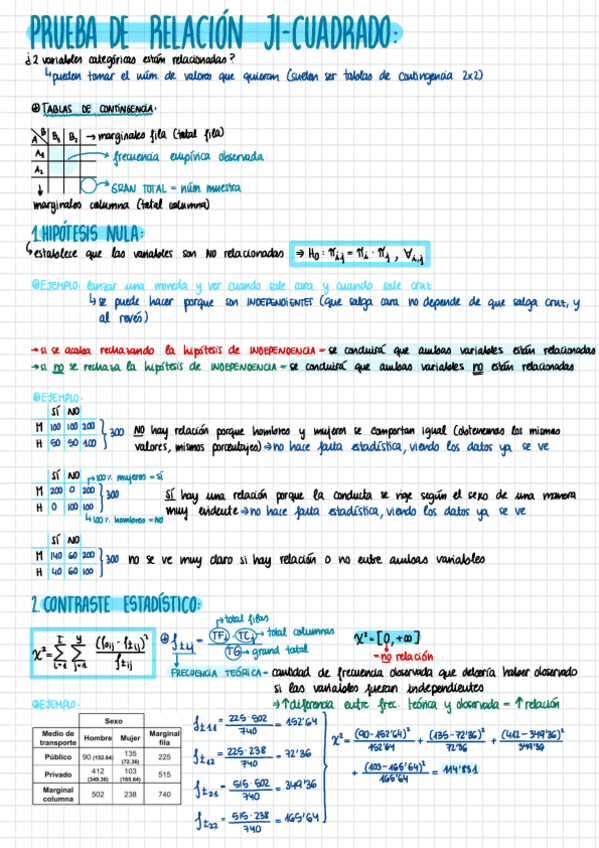 PRUEBA DE RELACIÓN JI-CUADRADO:
¿2 variables categóricas están relacionadas?
↳ pueden tomar el núm. de valores que quieran (suelen ser tablas de contingencia 2x2)
⊕ TABLAS DE CONTINGENCIA:
A B B₁ B₂ → marginales fila (total fila)
A₁ → frecuencia empírica observada
A₂
→ GRAN TOTAL = núm. muestra
marginales columna (total columna)
1. HIPÓTESIS NULA:
↳ establece que las variables son NO relacionadas ⇒ H₀: πᵢⱼ = πᵢ · πⱼ , ∀ᵢ,ⱼ
⊕ EJEMPLO: lanzar una moneda y ver cuando sale cara y cuando sale cruz
↳ se puede hacer porque son INDEPENDIENTES (que salga cara no depende de que salga cruz, y
al revés)
→ si se acaba rechazando la hipótesis de INDEPENDENCIA = se concluirá que ambas variables están relacionadas
→ si no se rechaza la hipótesis de INDEPENDENCIA = se concluirá que ambas variables no están relacionadas
⊕ EJEMPLO:
SÍ NO
M 100 100 200
H 50 50 100
300 NO hay relación porque hombres y mujeres se comportan igual (obtenemos los mismos
valores, mismos porcentajes) → no hace falta estadística, viendo los datos ya se ve
SÍ NO → 100% mujeres = SÍ
M 200 0 200
H 0 100 100
300 SÍ hay una relación porque la conducta se rige según el sexo de una manera
muy evidente → no hace falta estadística, viendo los datos ya se ve
↳ 100% hombres = NO
SÍ NO
M 140 60 200
H 40 60 100
300 no se ve muy claro si hay relación o no entre ambas variables
2. CONTRASTE ESTADÍSTICO:
→ total filas
⊕ f_tij = TFᵢ · TCⱼ / TG
→ total columnas
→ grand total
X² = [0, +∞]
→ no relación
FRECUENCIA TEÓRICA = cantidad de frecuencia observada que debería haber observado
si las variables fueran independientes
→ ↑ diferencia entre frec. teórica y observada = ↑ relación
⊕ EJEMPLO:
Sexo
Medio de transporte Hombre Mujer Marginal fila
Público 90 (152.64) 135 (72.36) 225
Privado 412 (349.36) 103 (165.64) 515
Marginal columna 502 238 740
f_t11 = 225·502 / 740 = 152'64
f_t12 = 225·238 / 740 = 72'36
f_t21 = 515·502 / 740 = 349'36
f_t22 = 515·238 / 740 = 165'64
X² = (90-152'64)² / 152'64 + (135-72'36)² / 72'36 + (412-349'36)² / 349'36
+ (103-165'64)² / 165'64 = 114'831